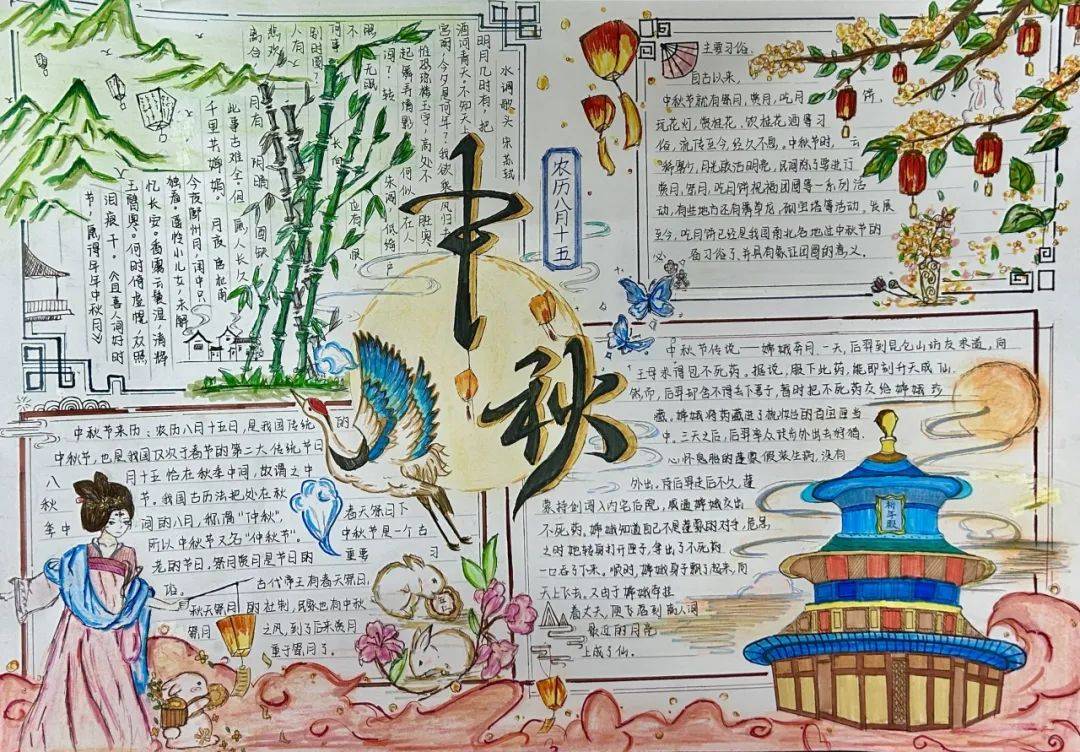 水调歌头 宋 苏轼
明月几时有,把
酒问青天。不知天
宫阙,今夕是何年?我欲乘风归去
惟恐琼楼玉宇,高处不 胜寒
起舞弄清影,何似在人
间?转 朱阁,低绮户
照 无眠
不 有恨
何事 长向
别时圆?
人有
悲欢
离合
月有 阴晴 圆缺
此事古难全。但 愿人长久
千里共婵娟。 月夜 唐 杜甫
今夜鄜州月,闺中只
独看。遥怜小儿女,未解
忆长安。香雾云鬟湿,清辉
玉臂寒。何时倚虚幌,双照
泪痕干。
节,愿得年年中秋月》
中秋
农历八月十五
主要习俗
自古以来,
中秋节就有祭月,赏月,吃月 饼,
玩花灯,赏桂花,饮桂花酒等习
俗,流传至今,经久不息。中秋节时,云
稀雾少,月光皎洁明亮,民间除了要进行
赏月,祭月,吃月饼祝福团圆等一系列活
动,有些地方还有舞草龙,砌宝塔等活动。发展
至今,吃月饼已经是我国南北各地过中秋节的
必 备习俗了,并具有象征团圆的意义。
中秋节来历:农历八月十五日,是我国传统 的
中秋节,也是我国仅次于春节的第二大传统节日
八 月十五恰在秋季中间,故谓之中
秋 节。我国古历法把处在秋
季中 间的八月,称谓“仲秋”,
所以中秋节又名“仲秋节”。
春天祭日下
中秋节是一个古
老的节日,祭月赏月是节日的 重要 习
俗。 古代帝王有春天祭日,
秋天祭月 的社制,民家也有中秋
祭月 之风,到了后来赏月
重于祭月了。
中秋节传说——嫦娥奔月。一天,后羿到昆仑山访友求道,向
王母求得包不死药。据说,服下此药,能即刻升天成仙。
然而,后羿却舍不得妻子,暂时把不死药交给嫦娥珍
藏,嫦娥将药藏进了梳妆台的百宝匣当
中。三天之后,后羿率人徒弟外出去狩猎,
心怀鬼胎的蓬蒙假装生病,没有
外出,待后羿走后不久,蓬
蒙持剑闯入内宅后院,威逼嫦娥交出
不死药,嫦娥知道自己不是蓬蒙的对手,危急
之时,她转身打开匣子,拿出了不死药
一口吞了下来。顺时,嫦娥身子飘了起来,向
天上飞去,又由于嫦娥牵挂
着丈夫,便飞落到离人间
最近的月亮
上成了仙。
祈年殿